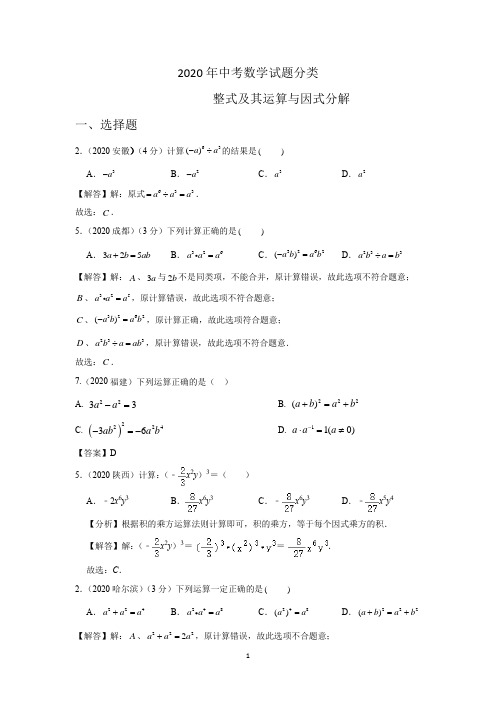 2020 年中考数学试题分类
整式及其运算与因式分解
一、选择题
2.(2020 安徽)(4 分)计算 (−a)⁶ ÷ a³ 的结果是 (    )
A. −a³ B. −a² C. a³ D. a²
【解答】解:原式 = a⁶ ÷ a³ = a³.
故选:C.
5.(2020 成都)(3 分)下列计算正确的是 (    )
A. 3a + 2b = 5ab B. a³•a² = a⁶ C. (−a³b)² = a⁶b² D. a²b³ ÷ a = b³
【解答】解:A、3a 与 2b 不是同类项,不能合并,原计算错误,故此选项不符合题意;
B、a³•a² = a⁵,原计算错误,故此选项不符合题意;
C、(−a³b)² = a⁶b²,原计算正确,故此选项符合题意;
D、a²b³ ÷ a = ab³,原计算错误,故此选项不符合题意.
故选:C.
7.(2020 福建)下列运算正确的是( )
A. 3a² − a² = 3 B. (a + b)² = a² + b²
C. (−3ab²)² = −6a²b⁴ D. a · a⁻¹ = 1(a ≠ 0)
【答案】D
5.(2020 陕西)计算:(﹣2/3x²y)³=( )
A.﹣2x⁶y³ B. 8/27x⁶y³ C.﹣8/27x⁶y³ D.﹣8/27x⁵y⁴
【分析】根据积的乘方运算法则计算即可,积的乘方,等于每个因式乘方的积.
【解答】解:(﹣2/3x²y)³= (−2/3)³•(x²)³•y³ = −8/27x⁶y³.
故选:C.
2.(2020 哈尔滨)(3 分)下列运算一定正确的是 (    )
A. a² + a² = a⁴ B. a²•a⁴ = a⁸ C. (a²)⁴ = a⁸ D. (a + b)² = a² + b²
【解答】解:A、a² + a² = 2a²,原计算错误,故此选项不合题意;
1